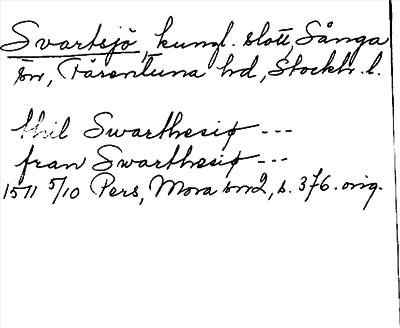 Svartsjö, kungl. slott, Sånga
sn, Färentuna hd, Stockh. l.
thil Swarthesiø ---
fran Swarthesiø ---
1511 5/10 Pers, Mora sn 2, s. 376. orig.